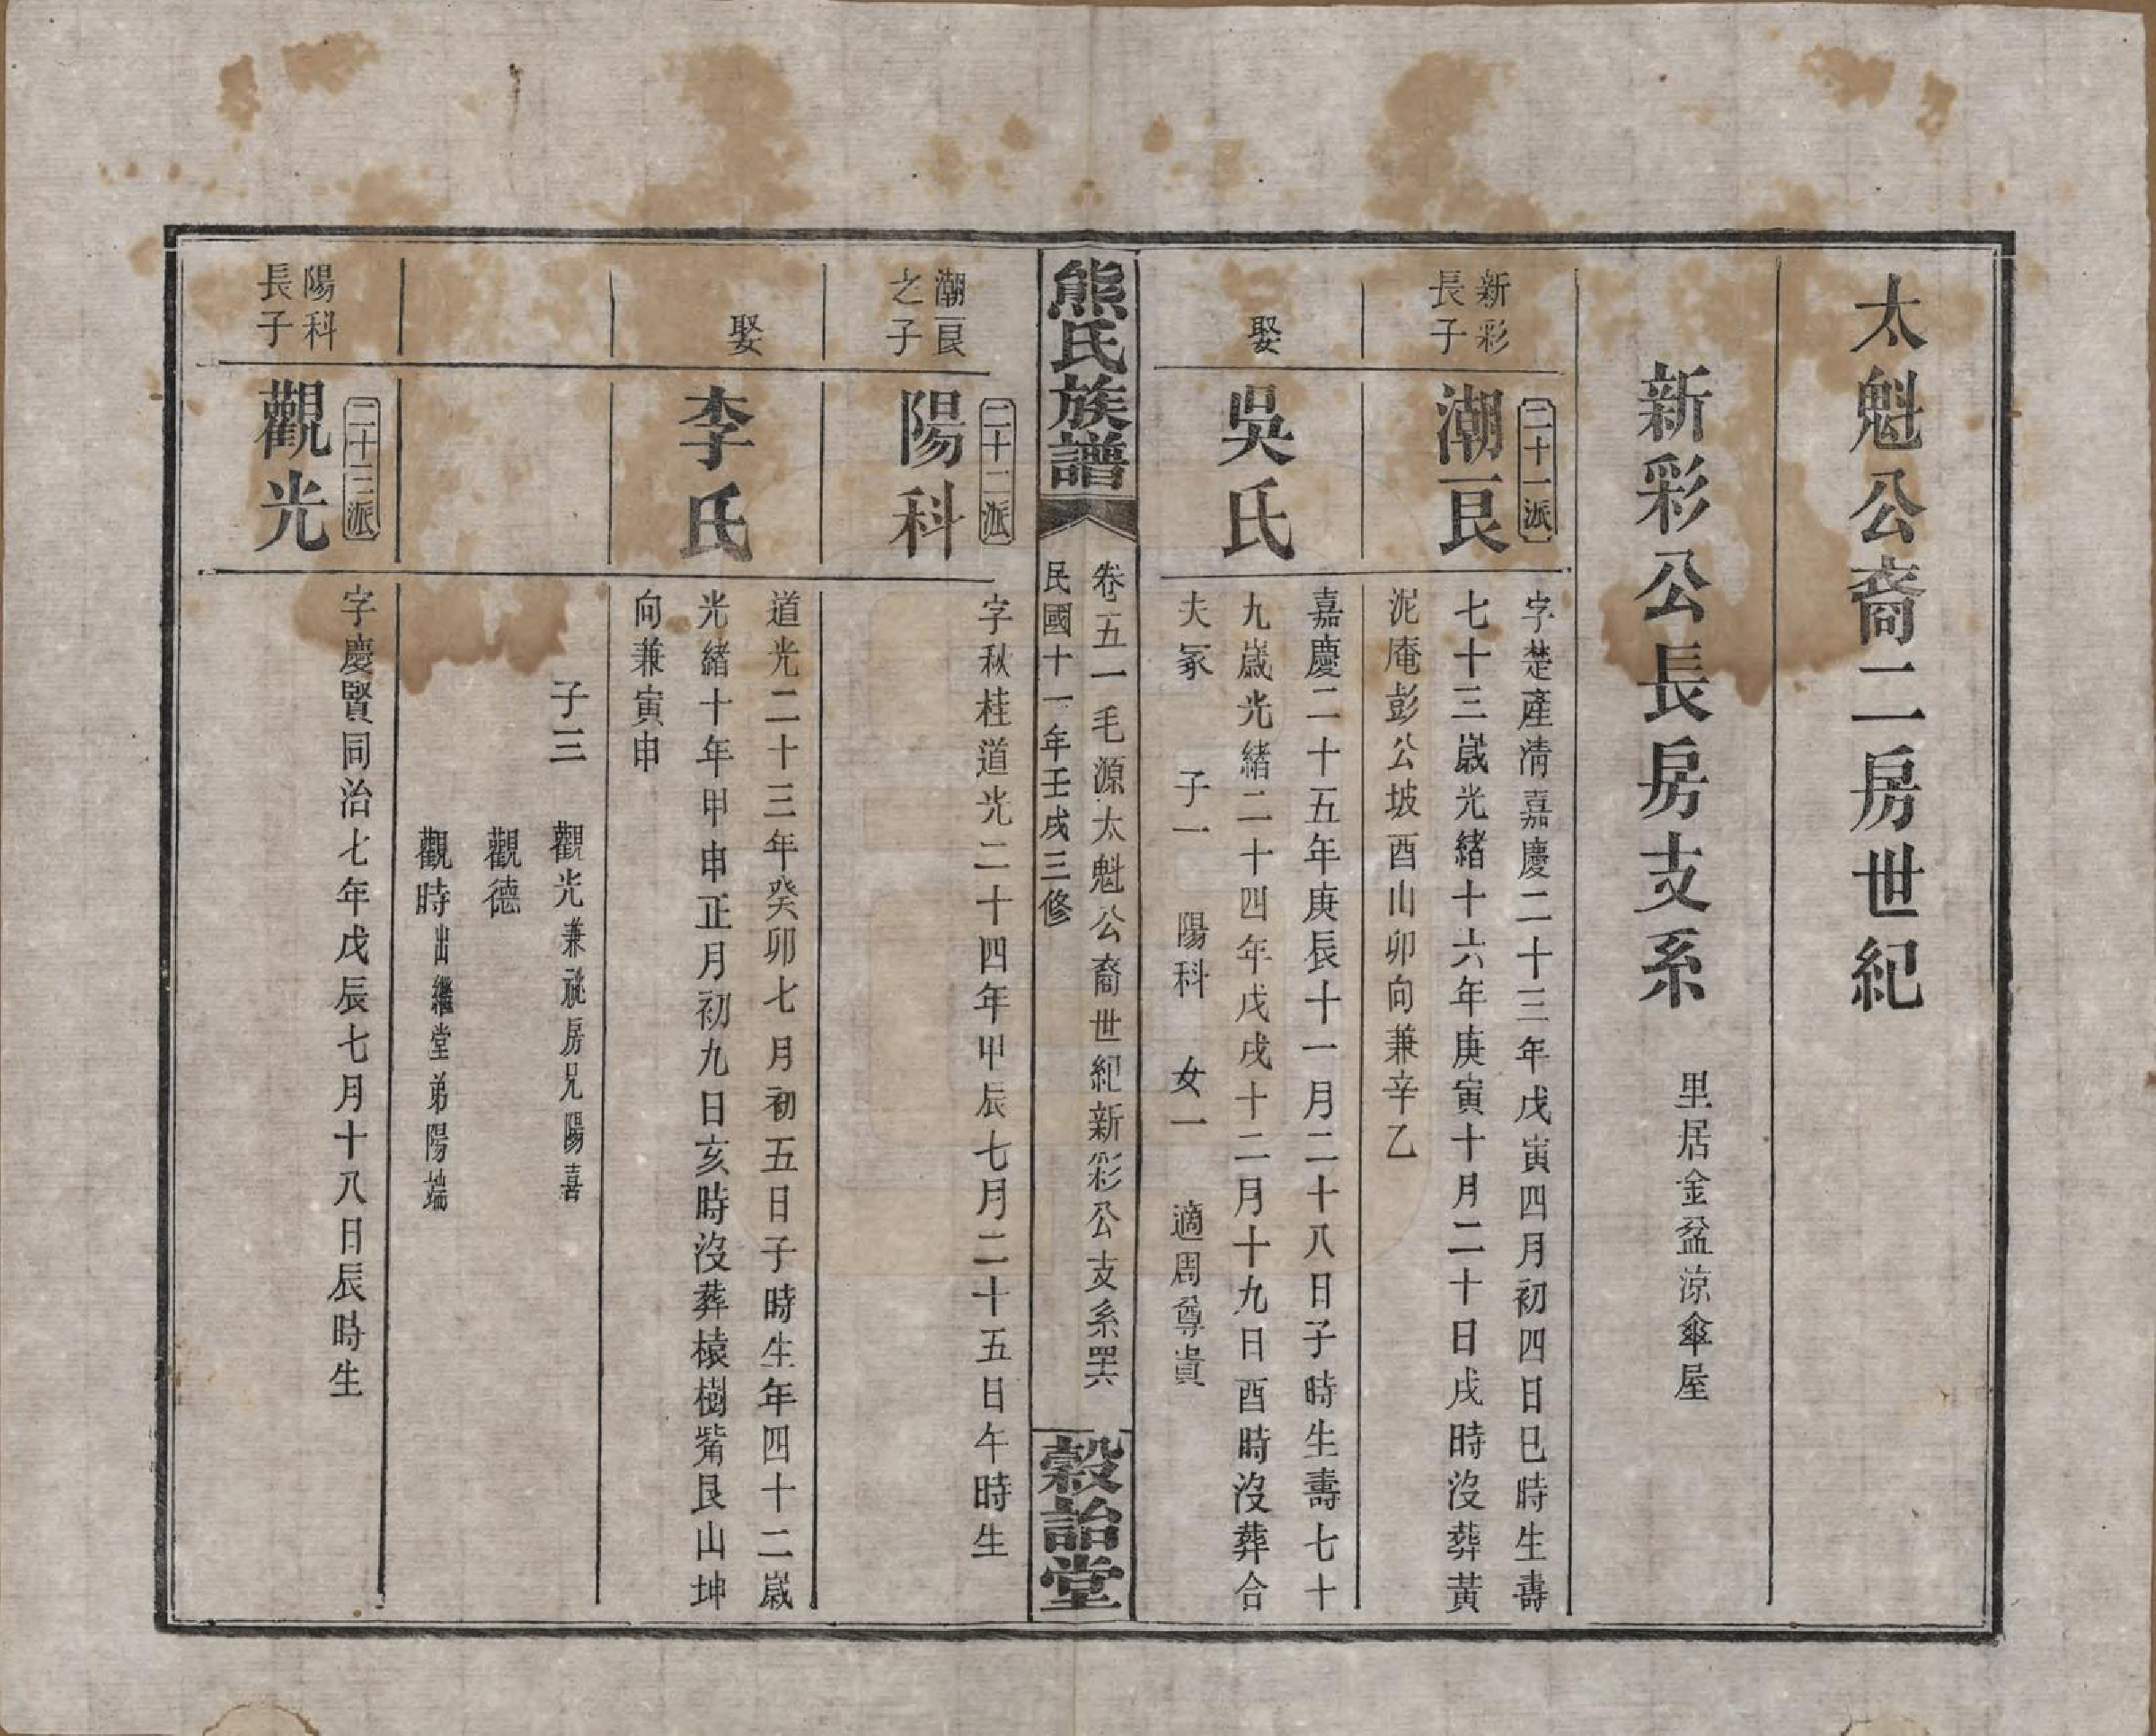 太魁公裔二房世紀
新彩公長房支系 里居金盆涼傘屋
新彩
長子
二十一派
潮艮
字楚產清嘉慶二十三年戊寅四月初四日巳時生壽
七十三歲光緒十六年庚寅十月二十日戌時沒葬黃
泥庵彭公坡酉山卯向兼辛乙
娶
吳氏
嘉慶二十五年庚辰十一月二十八日子時生壽七十
九歲光緒二十四年戊戌十二月十九日酉時沒葬合
夫冢 子一 陽科 女一 適周尊貴
熊氏族譜
卷五一毛源太魁公裔世紀新彩公支系
民國十一年壬戌三修
穀詒堂
潮艮
之子
二十二派
陽科
字秋桂道光二十四年甲辰七月二十五日午時生
娶
李氏
道光二十三年癸卯七月初五日子時生年四十二歲
光緒十年甲申正月初九日亥時沒葬榬樹觜艮山坤
向兼寅申
子三 觀光兼祧房兄陽喜
觀德
觀時出繼堂弟陽端
陽科
長子
二十三派
觀光
字慶賢同治七年戊辰七月十八日辰時生